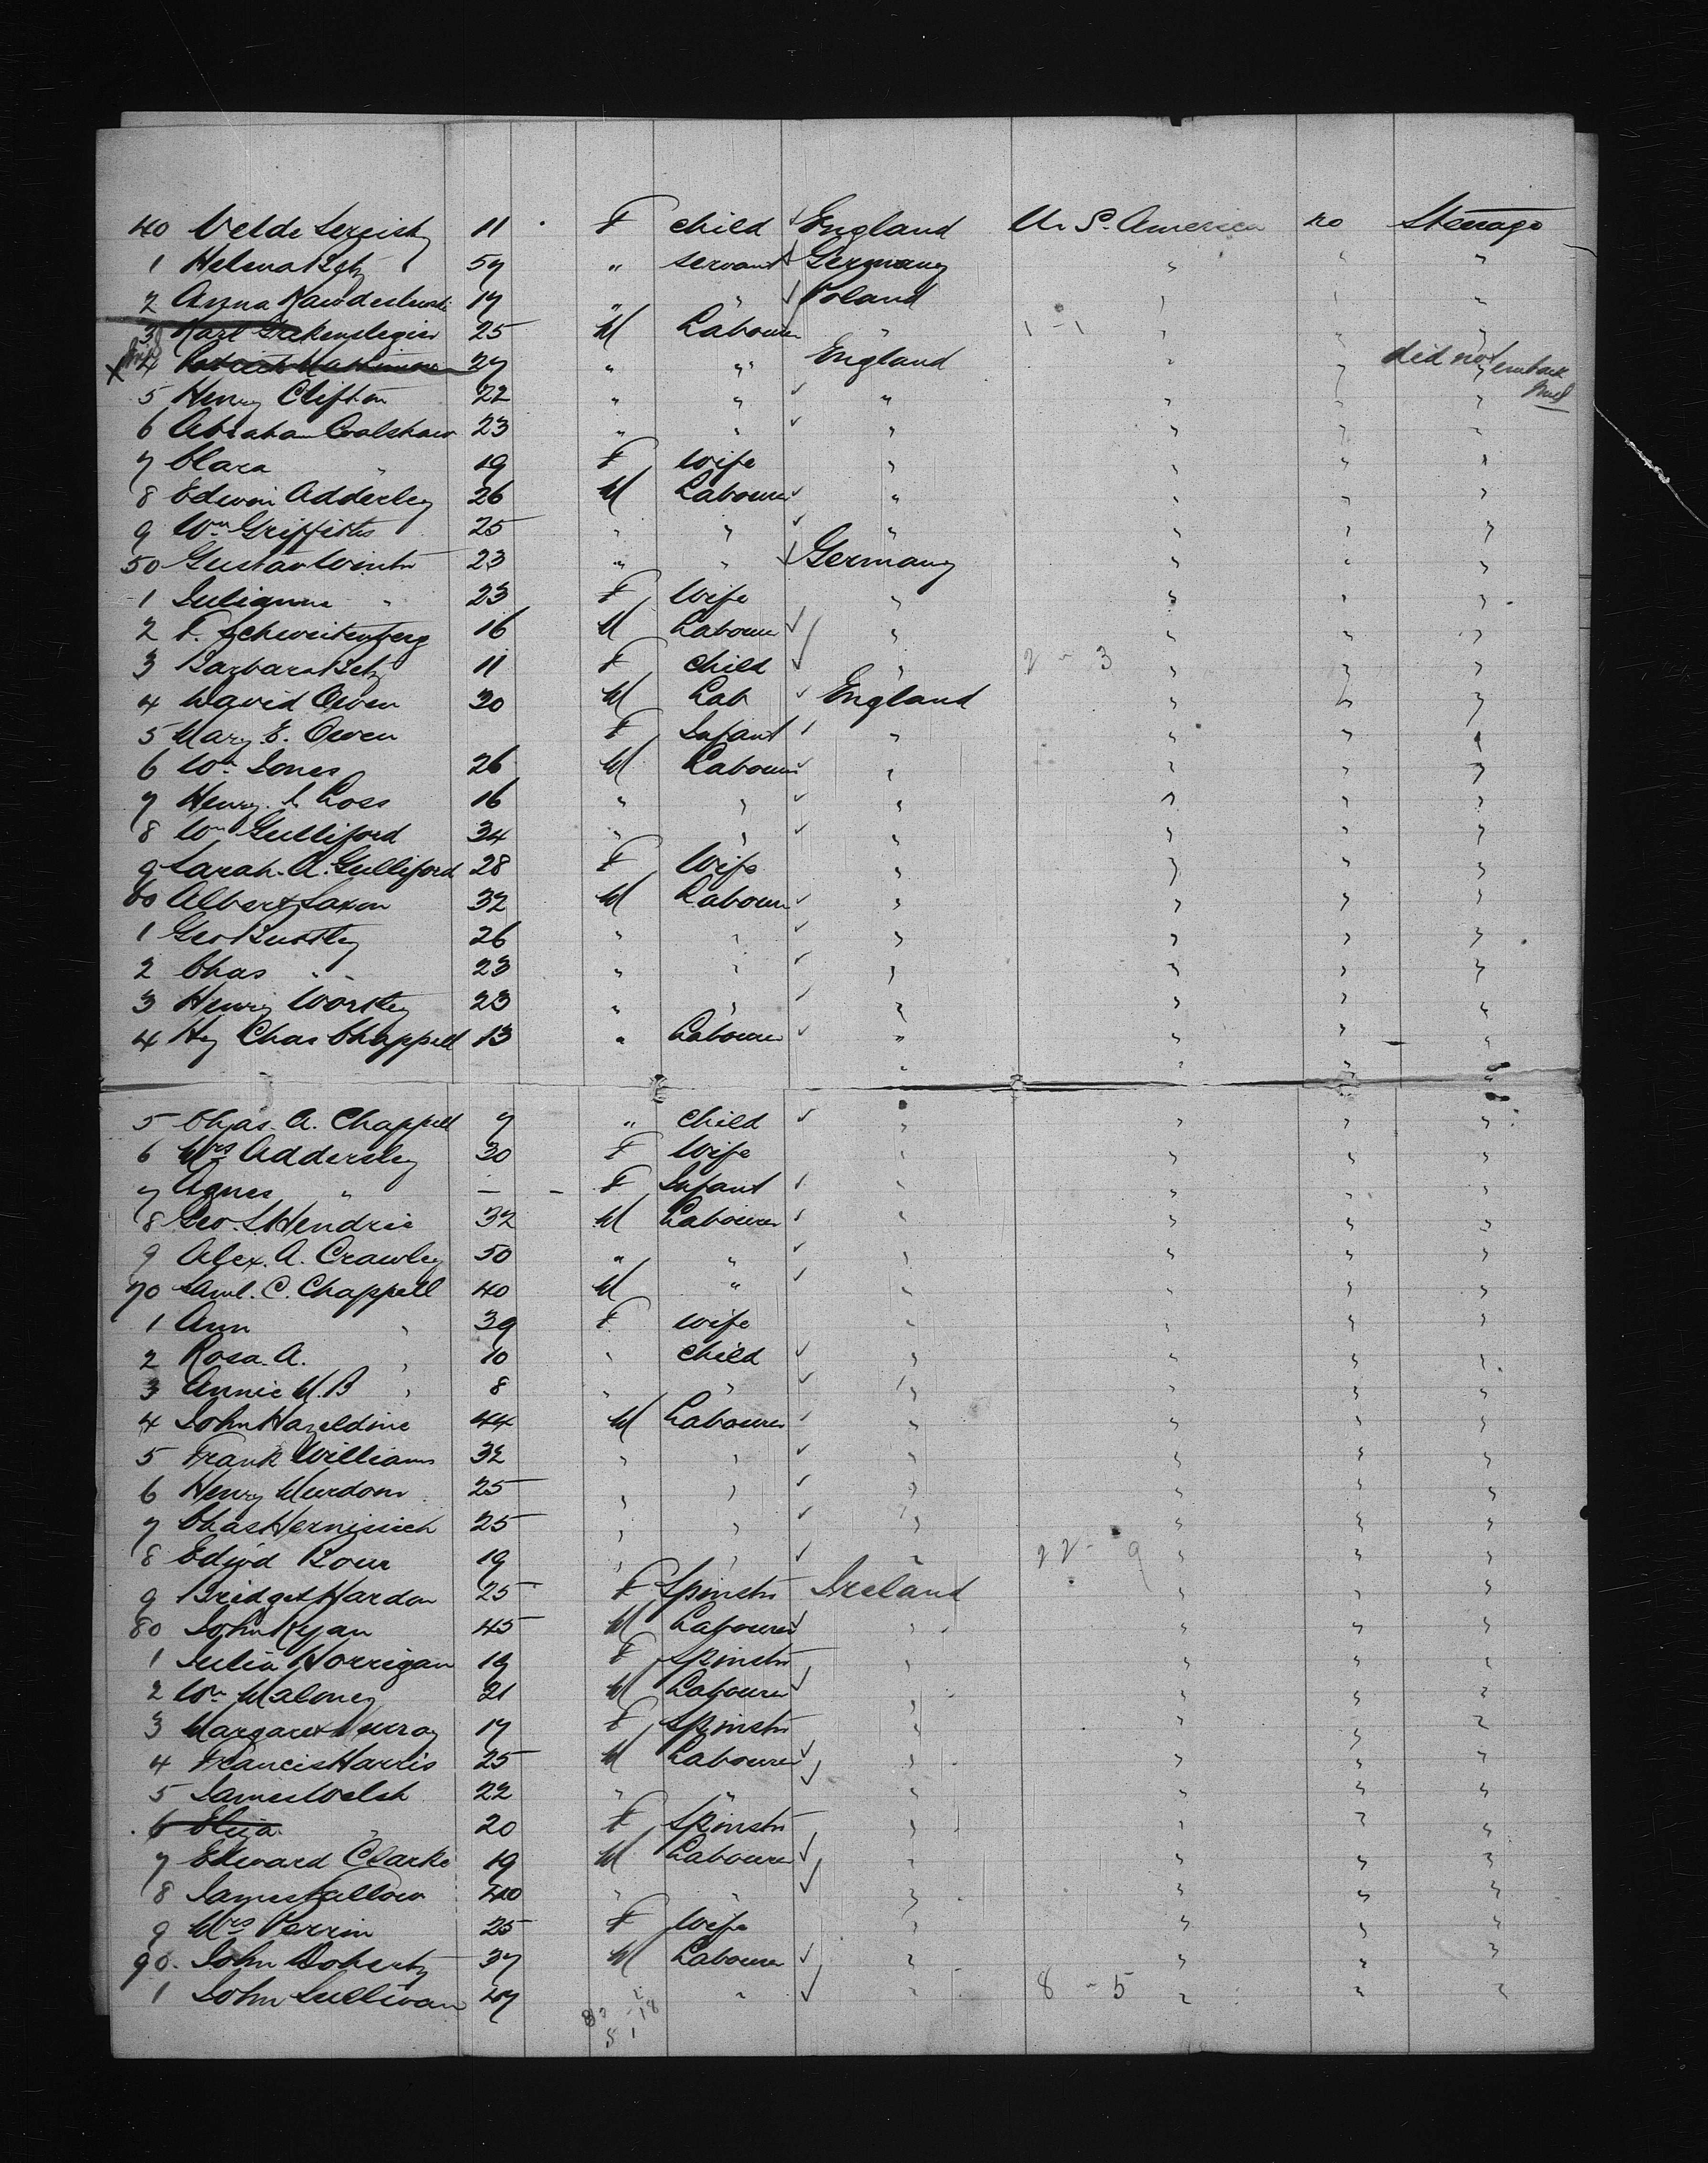 40 Velde 11 F child England U. S. America no Steerage
1 Helena Betz 57 " servant Germany " " "
2 Anna 17 " " Poland " " "
3 Karl 25 M Labourer " 1-1 " " "
X 4 27 " " England " " did not embark
5 Henry Clifton 22 " " " " " "
6 Abraham Coalshaw 23 " " " " " "
7 Clara " 19 F Wife " " " "
8 Edwin Adderley 26 M Labourer " " " "
9 Wm Griffiths 25 " " " " " "
50 Gustav Winter 23 " " Germany " " "
1 Julianna " 23 F Wife " " " "
2 F. Schweitenberg 16 M Labourer " " " "
3 Barbara Betz 11 F child " 2-3 " " "
4 David Owen 30 M Lab England " " "
5 Mary E. Owen F Infant " " " "
6 Wm Jones 26 M Labourer " " " "
7 Henry Loss 16 " " " " " "
8 Wm Gulliford 34 " " " " " "
9 Sarah A. Gulliford 28 F Wife " " " "
60 Albert Saxon 32 M Labourer " " " "
1 Geo 26 " " " " " "
2 Chas " 23 " " " " " "
3 Henry Worsley 23 " " " " " "
4 Hy Chas Chappell 13 " Labourer " " " "
5 Chas. A. Chappell 7 " child " " " "
6 Mrs Addersley 30 F Wife " " " "
7 Agnes " - - F Infant " " " "
8 Geo. S Hendrie 32 M Labourer " " " "
9 Alex. A. Crawley 50 " " " " " "
70 Saml. C. Chappell 40 M " " " " "
1 Ann " 39 F Wife " " " "
2 Rosa. A. " 10 " child " " " "
3 Annie M. B " 8 " " " " " "
4 John Hazeldine 44 M Labourer " " " "
5 Frank Williams 32 " " " " " "
6 Henry Murdom 25 " " " " " "
7 Chas 25 " " " " " "
8 Edwd 19 " " " 22-9 " " "
9 Bridget Hardon 25 F Spinster Ireland " " "
80 John Ryan 45 M Labourer " " " "
1 Julia Horrigan 19 F Spinster " " " "
2 Wm Maloney 21 M Labourer " " " "
3 Margaret Murray 17 F Spinster " " " "
4 Francis Harris 25 M Labourer " " " "
5 James Welsh 22 " " " " " "
6 Eliza " 20 F Spinster " " " "
7 Edward Clarke 19 M Labourer " " " "
8 James Fallow 40 " " " " " "
9 Mrs Perrin 25 F Wife " " " "
90. John Doherty 37 M Labourer " " " "
1 John Sullivan 47 " " 8-5 " " "